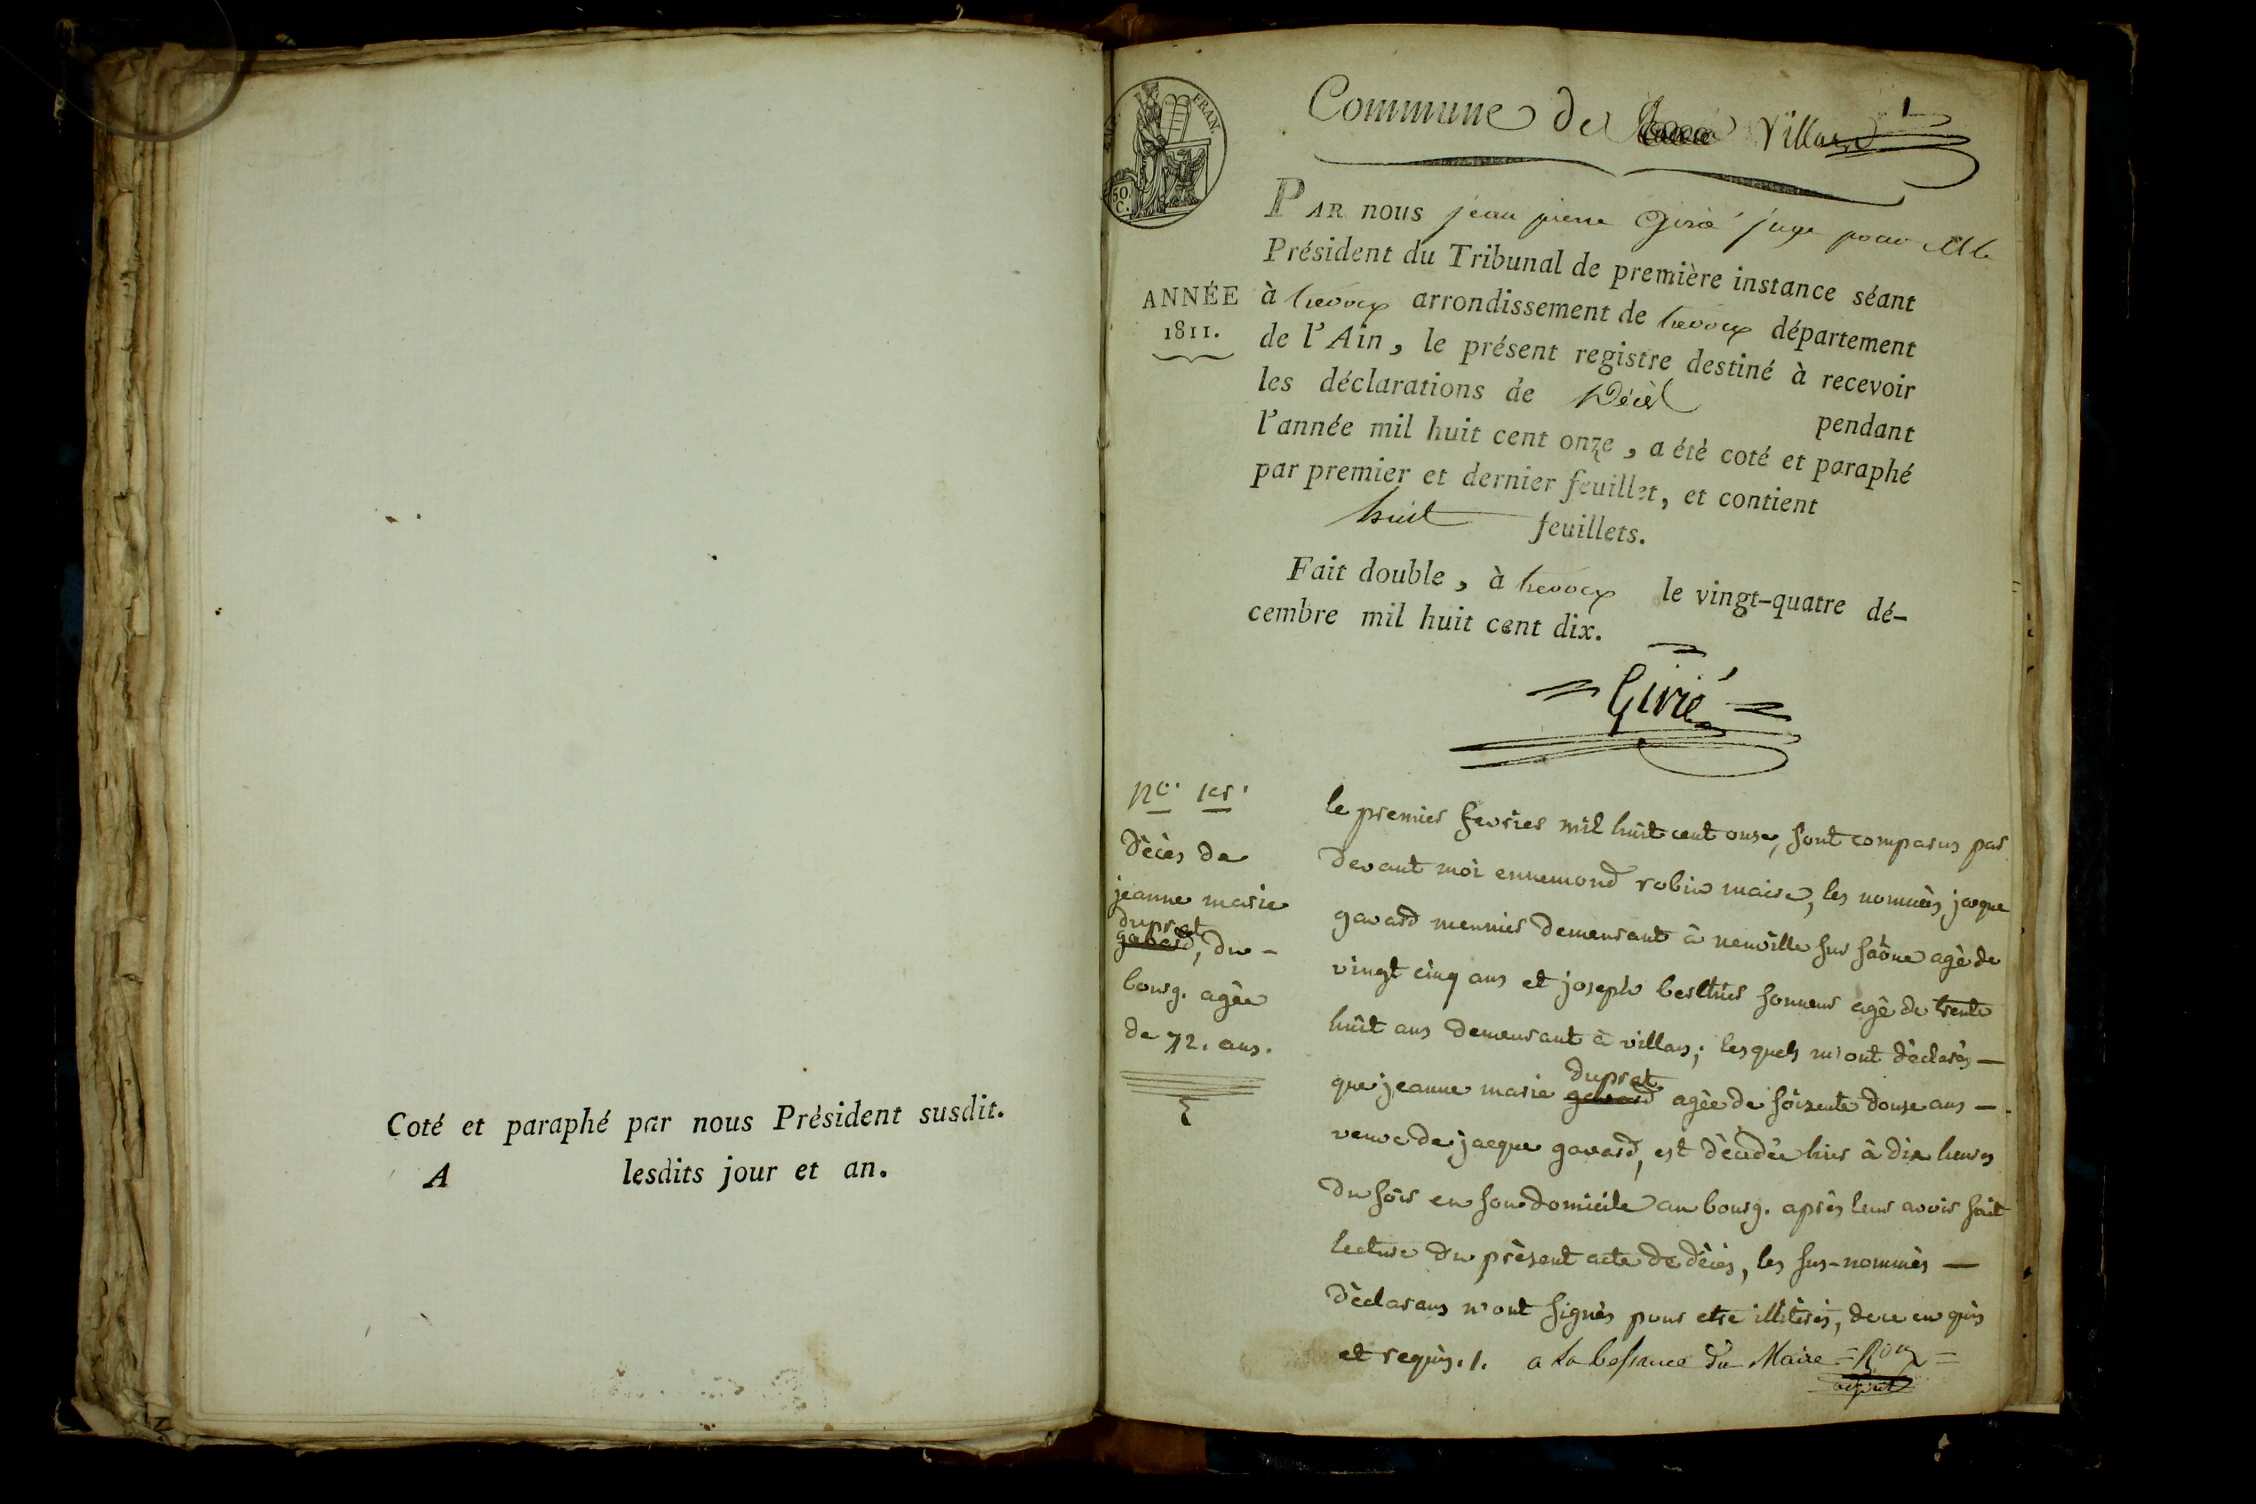 Coté et paraphé par nous Président susdit.
A lesdits jour et an.
FRAN.
50.
C.
Commune de Villars
1
PAR nous jean pierre Girié juge pour M. le
Président du Tribunal de première instance séant
ANNÉE
1811.
à trevoux arrondissement de trevoux département
de l'Ain, le présent registre destiné à recevoir
les déclarations de Décès pendant
l'année mil huit cent onze, a été coté et paraphé
par premier et dernier feuillet, et contient
huit feuillets.
Fait double, à trevoux le vingt-quatre dé-
cembre mil huit cent dix.
= Girié =
no. 1er.
Dècès de
jeanne marie
duprat
gavard, du -
bourg. agèe
de 72. ans.
le premier fevrier mil huit cent onze, sont comparus par
devant moi ennemond robin maire, les nommès jacque
gavard meunier demeurant à neuville sur saône agè de
vingt cinq ans et joseph berthier sonneur agè de trente
huit ans demeurant à villars; lesquels m'ont dèclarès —
duprat
que jeanne marie gavard agèe de soixente douze ans —
veuve de jacque gavard, est dècèdèe hier à dix heures
du soir en son domicile au bourg. après leur avoir fait
lecture du prèsent acte de dècès, les sus-nommès —
dèclarans n'ont signès pour etre illitèrès, de ce enquis
et requis ./. a la bessence du Maire = Roux =
adjoint